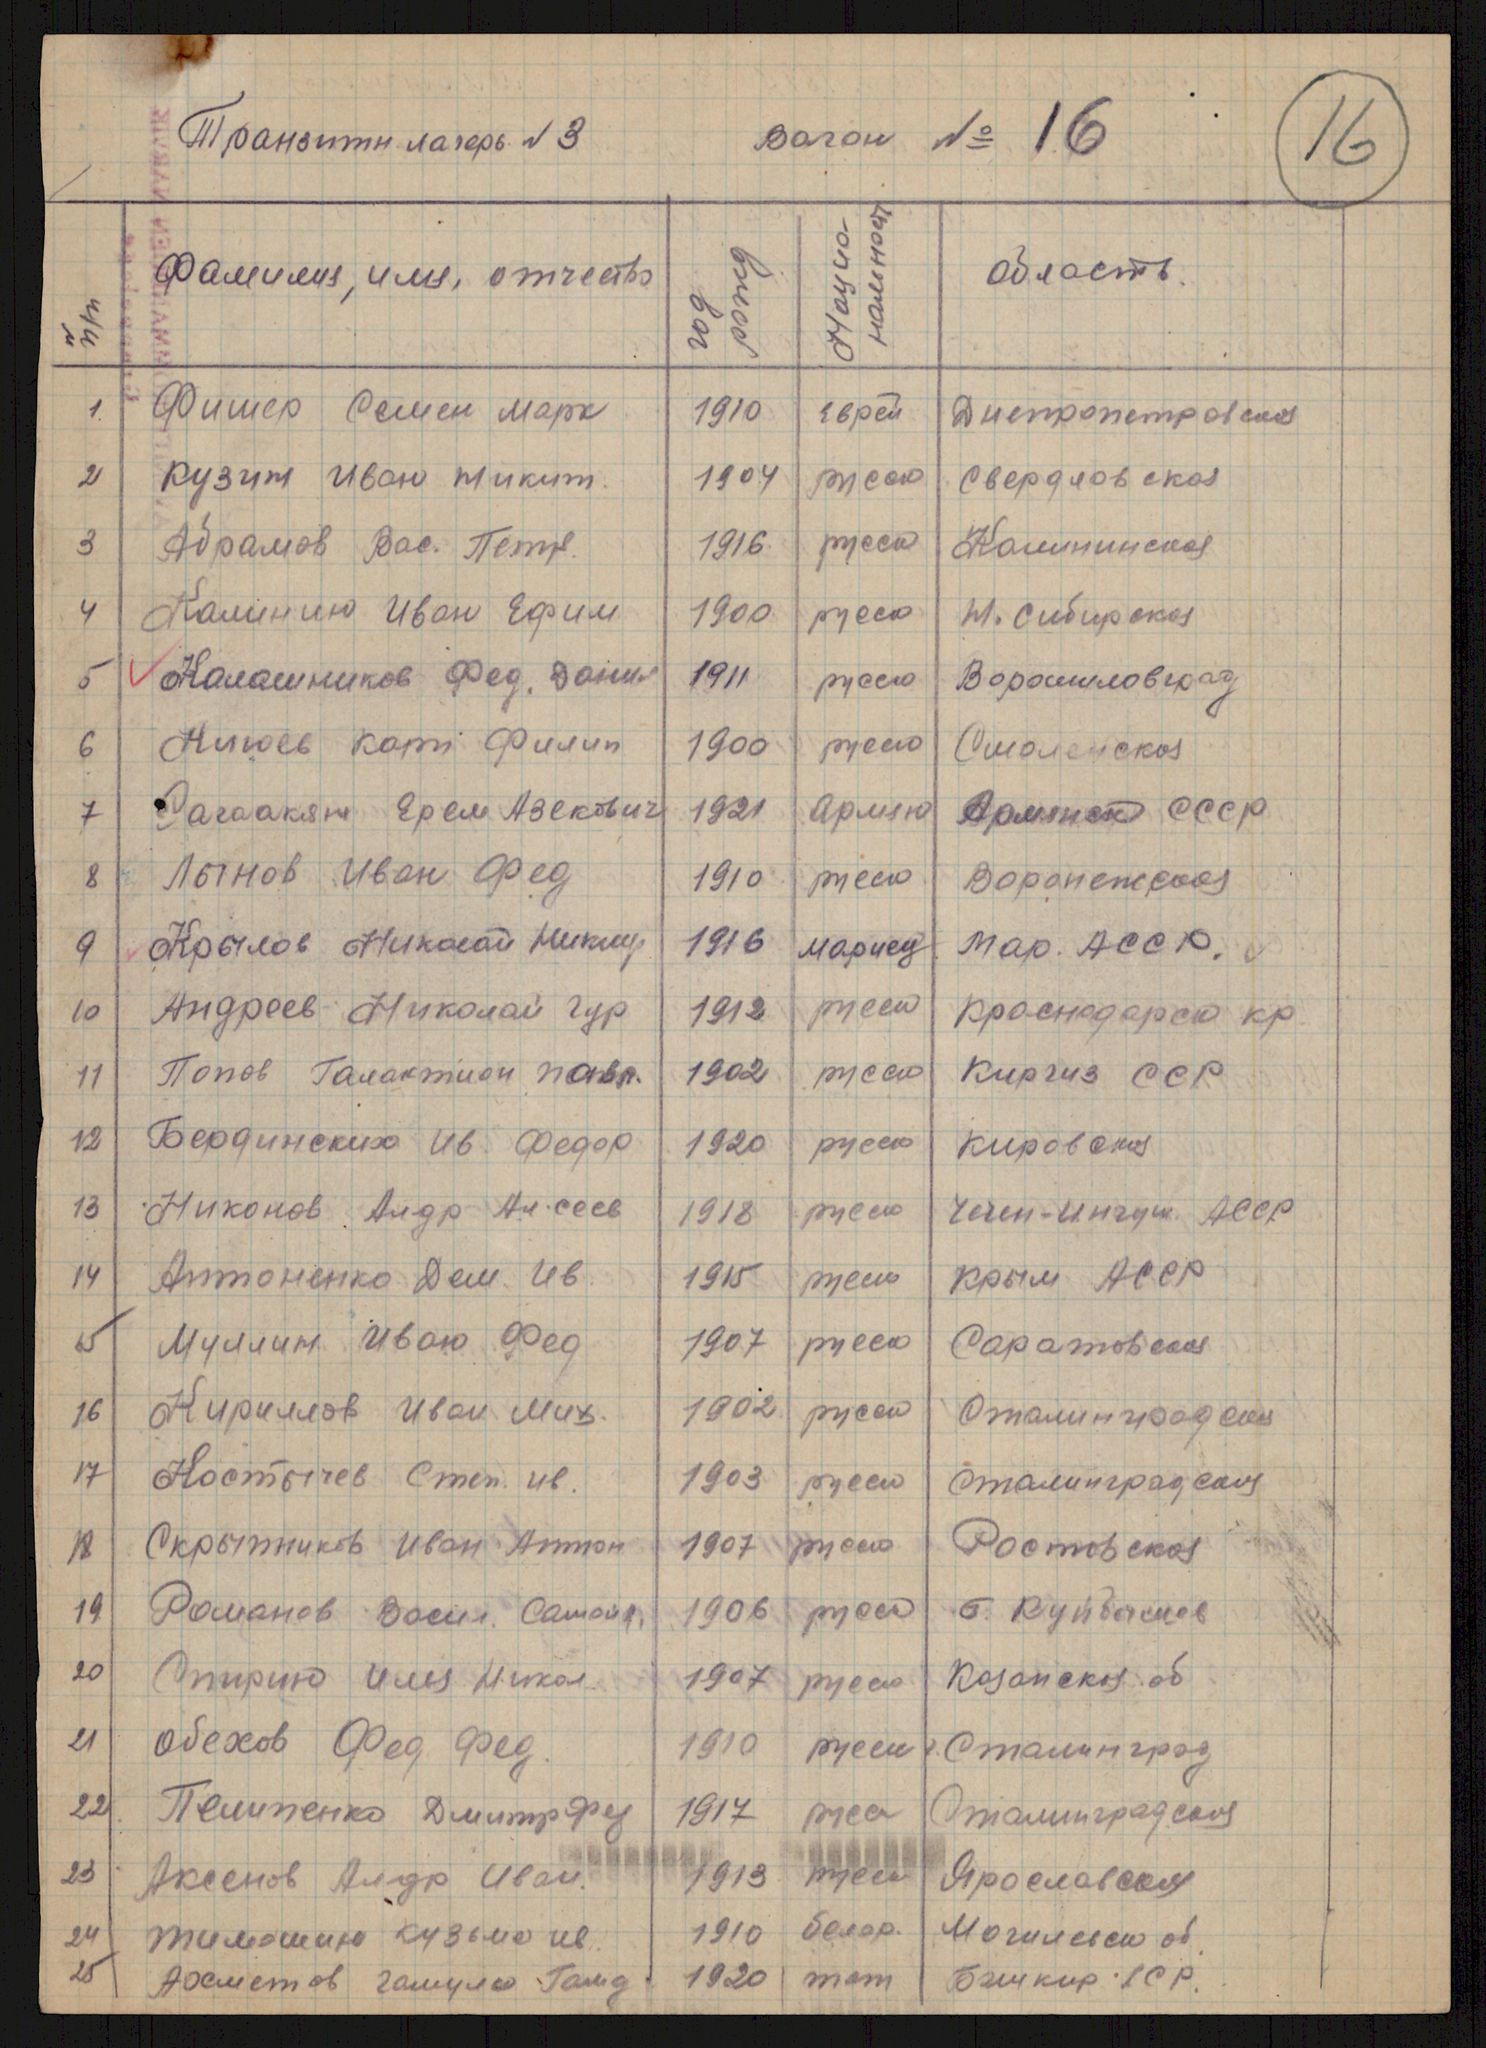 Транзитн лагерь № 3 Вагон № 16 16
№ п/п Фамилия, имя, отчество год рожд Нацио-нальность область.
1. Фишер Семен Марк 1910 еврей Днепропетровская
2 Кузин Иван Никит. 1904 русск Свердловская
3 Абрамов Вас. Петр. 1916 русск Калининская
4 Калинин Иван Ефим 1900 русск Н. Сибирская
5 Калашников Фед. Данил 1911 русск Ворошиловград
6 Карп Филип 1900 русск Смоленская
7 Ерем Азекович 1921 Армян Армянск СССР
8 Лынов Иван Фед 1910 русск Воронежская
9 Крылов Николай 1916 мариец Мар. АССР.
10 Андреев Николай Гур 1912 русск Краснодарск кр
11 Попов Галактион Павл. 1902 русск Киргиз ССР
12 Бердинских Ив. Федор 1920 русск Кировская
13 Никонов Алдр Ал.сеев 1918 русск Чечен-Ингуш АССР
14 Антоненко Дем. Ив. 1915 русск Крым АССР
15 Муллин Иван Фед 1907 русск Саратовская
16 Кириллов Иван Мих. 1902 русск Сталинградская
17 Костычев Степ. Ив. 1903 русск Сталинградская
18 Скрыпников Иван Антон 1907 русск Ростовская
19 Романов Васил. Самойл. 1906 русск г. Куйбышев
20 Спирин Илья Никол 1907 русск Казанская об
21 Обехов Фед Фед. 1910 русск Сталинград
22. Пелипенко Дмитр Фед 1917 русск Сталинградская
23 Аксенов Алдр Иван. 1913 русск Ярославская
24 Тимошин Кузьма Ив. 1910 белор. Могилевск об.
25 Ахметов Гамид 1920 тат Башкир. АССР.